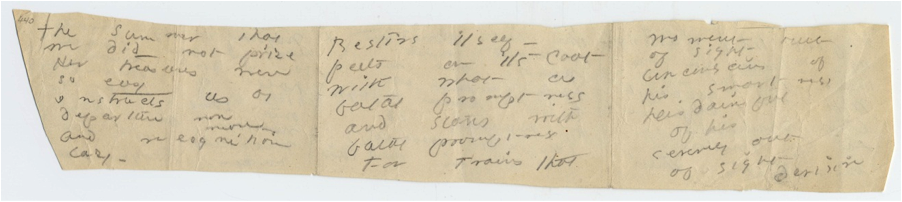 440
The Summer that
we did not prize
Her treasures were
so easy
instructs us by
departure now
and recognition
lazy -
Bestirs itself -
puts on its Coat
with what
fatal promptness
and scans with
fatal promptness
For Trains that
moment out
of sight -
unconscious of
his smartness
his
of his
serenely out
of sight derision